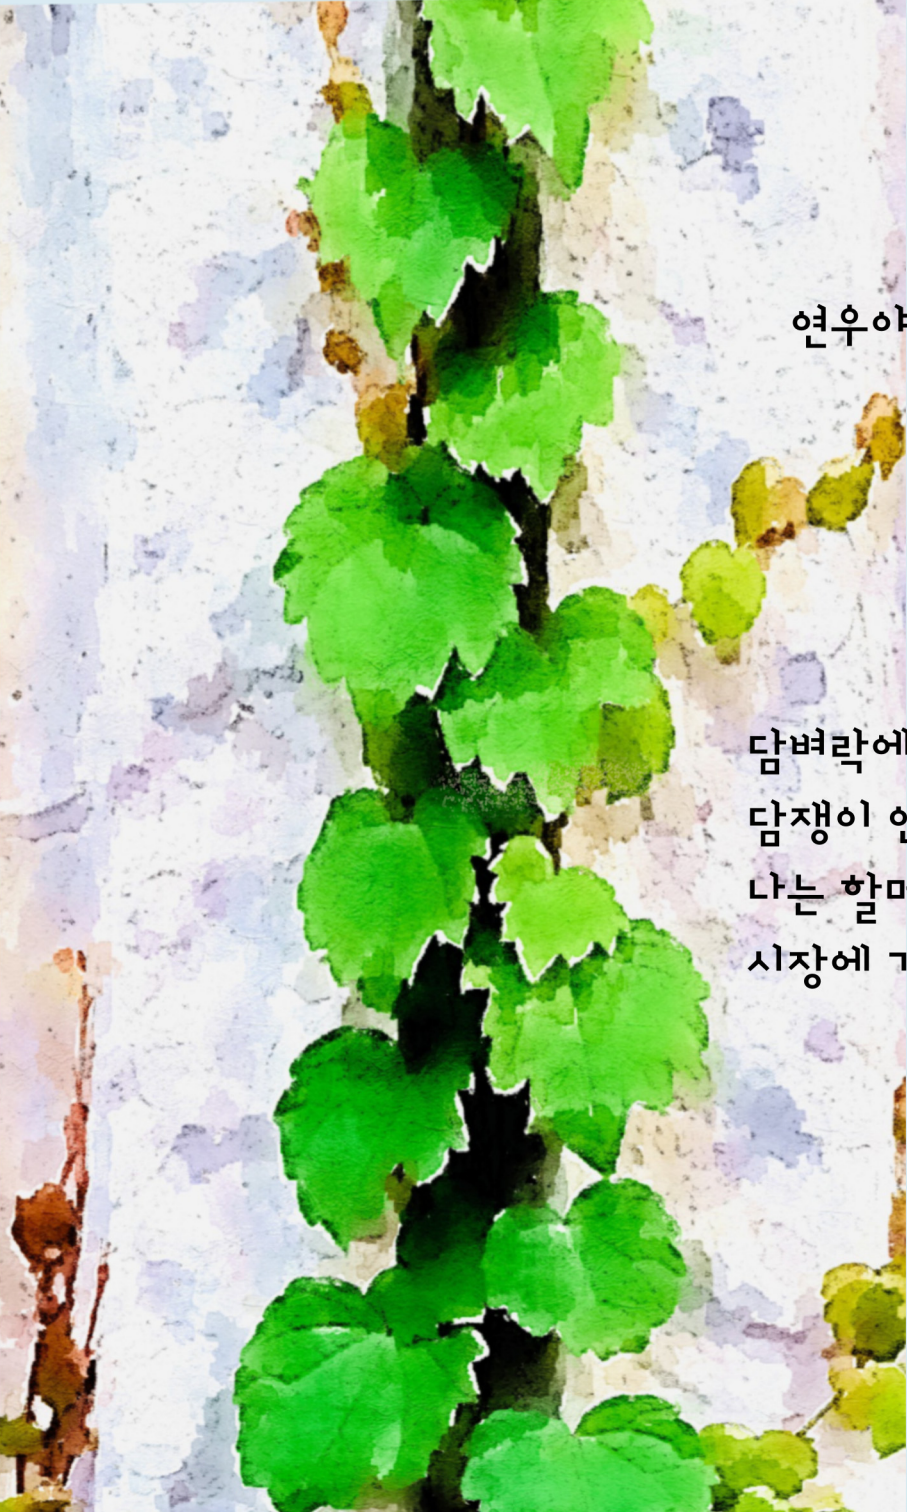 연우야
담벼락에
담쟁이
나는
시장에